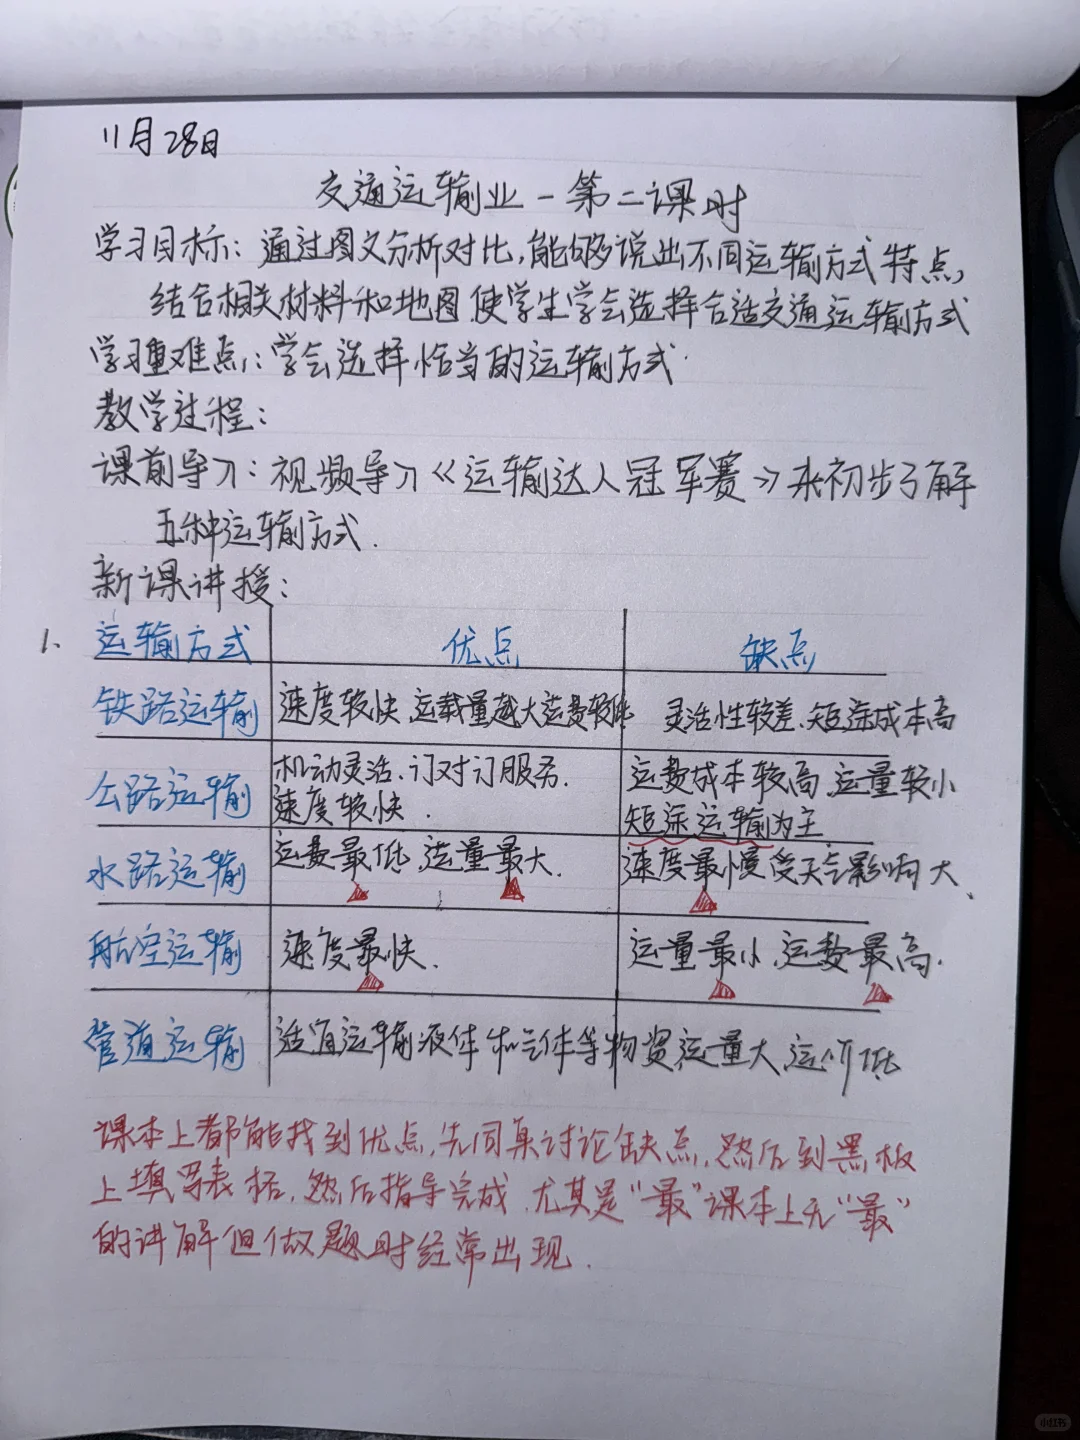 11月28日
交通运输业-第二课时
学习目标：通过图文分析对比，能够说出不同运输方式特点，
结合相关材料和地图，使学生学会选择合适交通运输方式
学习重难点：学会选择恰当的运输方式.
教学过程：
课前导入：视频导入《运输达人冠军赛》来初步了解
五种运输方式.
新课讲授：
1. 运输方式 优点 缺点
铁路运输 速度较快、运载量越大运费较低 灵活性较差、短途成本高
公路运输 机动灵活、订对订服务. 运费成本较高、运量较小
速度较快. 短途运输为主
水路运输 运费最低，运量最大. 速度最慢受天气影响大、
航空运输 速度最快. 运量最小、运费最高.
管道运输 适宜运输液体和气体等物资，运量大、运价低
课本上都能找到优点，先同桌讨论缺点，然后到黑板
上填写表格，然后指导完成.尤其是“最”课本上无“最”
的讲解但做题时经常出现.
小红书